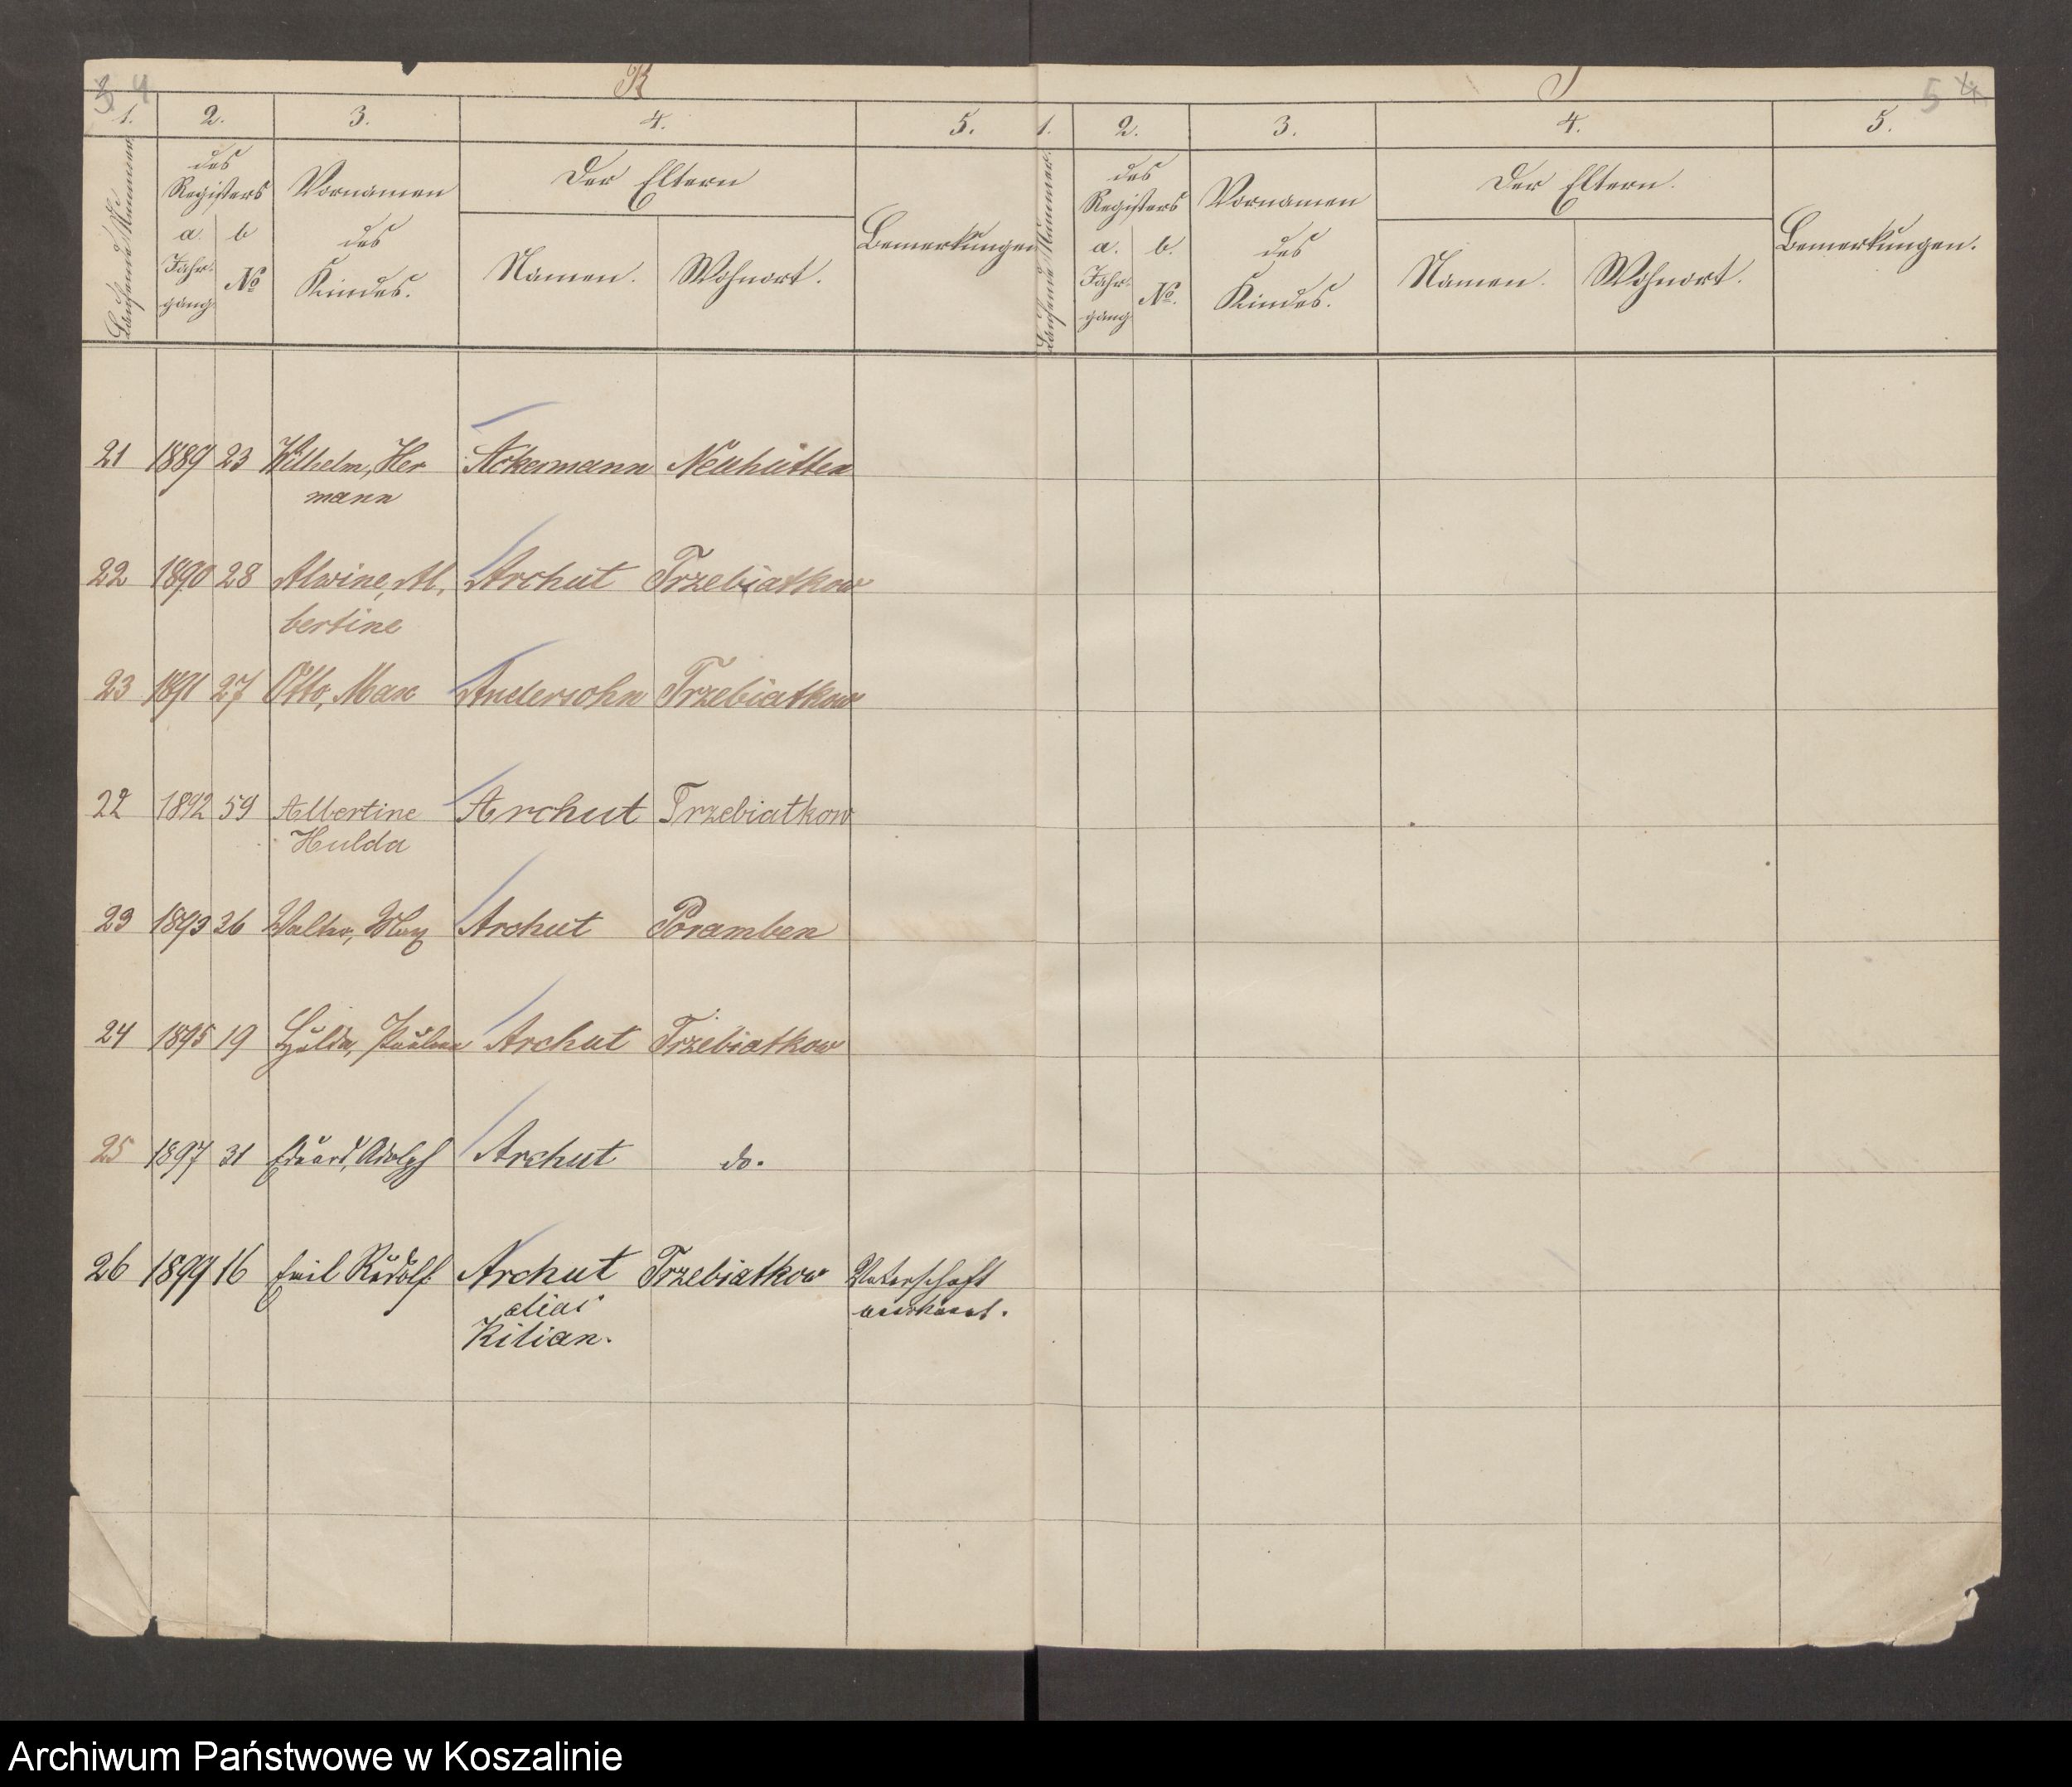 3 4
R
1. 2. 3. 4. 5.
Laufende Nummer.
des Registers
Vornamen des Kindes.
Der Eltern
Bemerkungen
a. Jahrgang.
b №
Namen.
Wohnort.
21 1889 23 Wilhelm, Her Ackermann Neuhütten
mann
22 1890 28 Alwine, Al, Archut Trzebiatkow
bertine
23 1891 27 Otto, Max Andersohn Trzebiatkow
22 1892 59 Albertine Archut Trzebiatkow
Hulda
23 1893 36 Walter, Max Archut Poramben
24 1895 19 Hulda, Pauline Archut Trzebiatkow
25 1897 31 Eduard, Adolph Archut do.
26 1899 16 Emil Rudolf. Archut Trzebiatkow Vaterschaft
alias anerkannt.
Kilian.
5 4
1. 2. 3. 4. 5.
Laufende Nummer.
des Registers
Vornamen des Kindes.
Der Eltern.
Bemerkungen.
a. Jahrgang.
b. №.
Namen.
Wohnort.
Archiwum Państwowe w Koszalinie